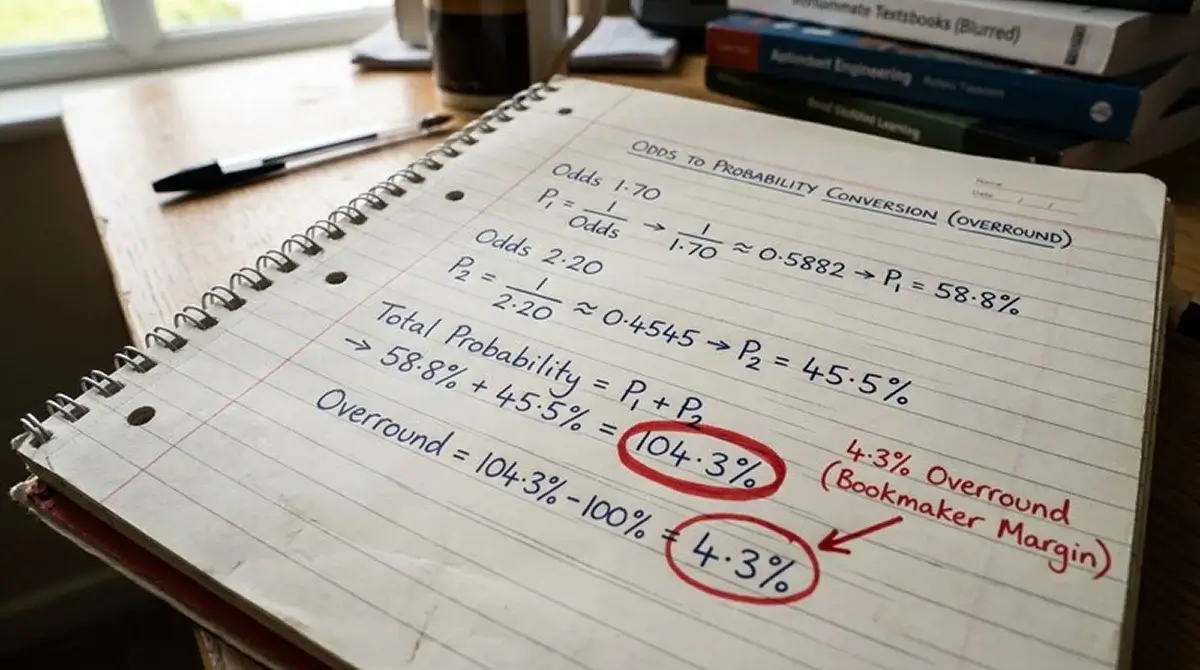 Textbooks (Blurred)
Engineering
Learning
Name
Date / /
ODDS TO PROBABILITY CONVERSION (OVERROUND)
Odds 1·70
P₁ = 1/Odds → 1/1·70 ≈ 0·5882 → P₁ = 58·8%
Odds 2·20
P₂ = 1/2·20 ≈ 0·4545 → P₂ = 45·5%
Total Probability = P₁ + P₂
→ 58·8% + 45·5% = 104·3%
Overround = 104·3% - 100% = 4·3%
4·3% Overround
(Bookmaker
Margin)